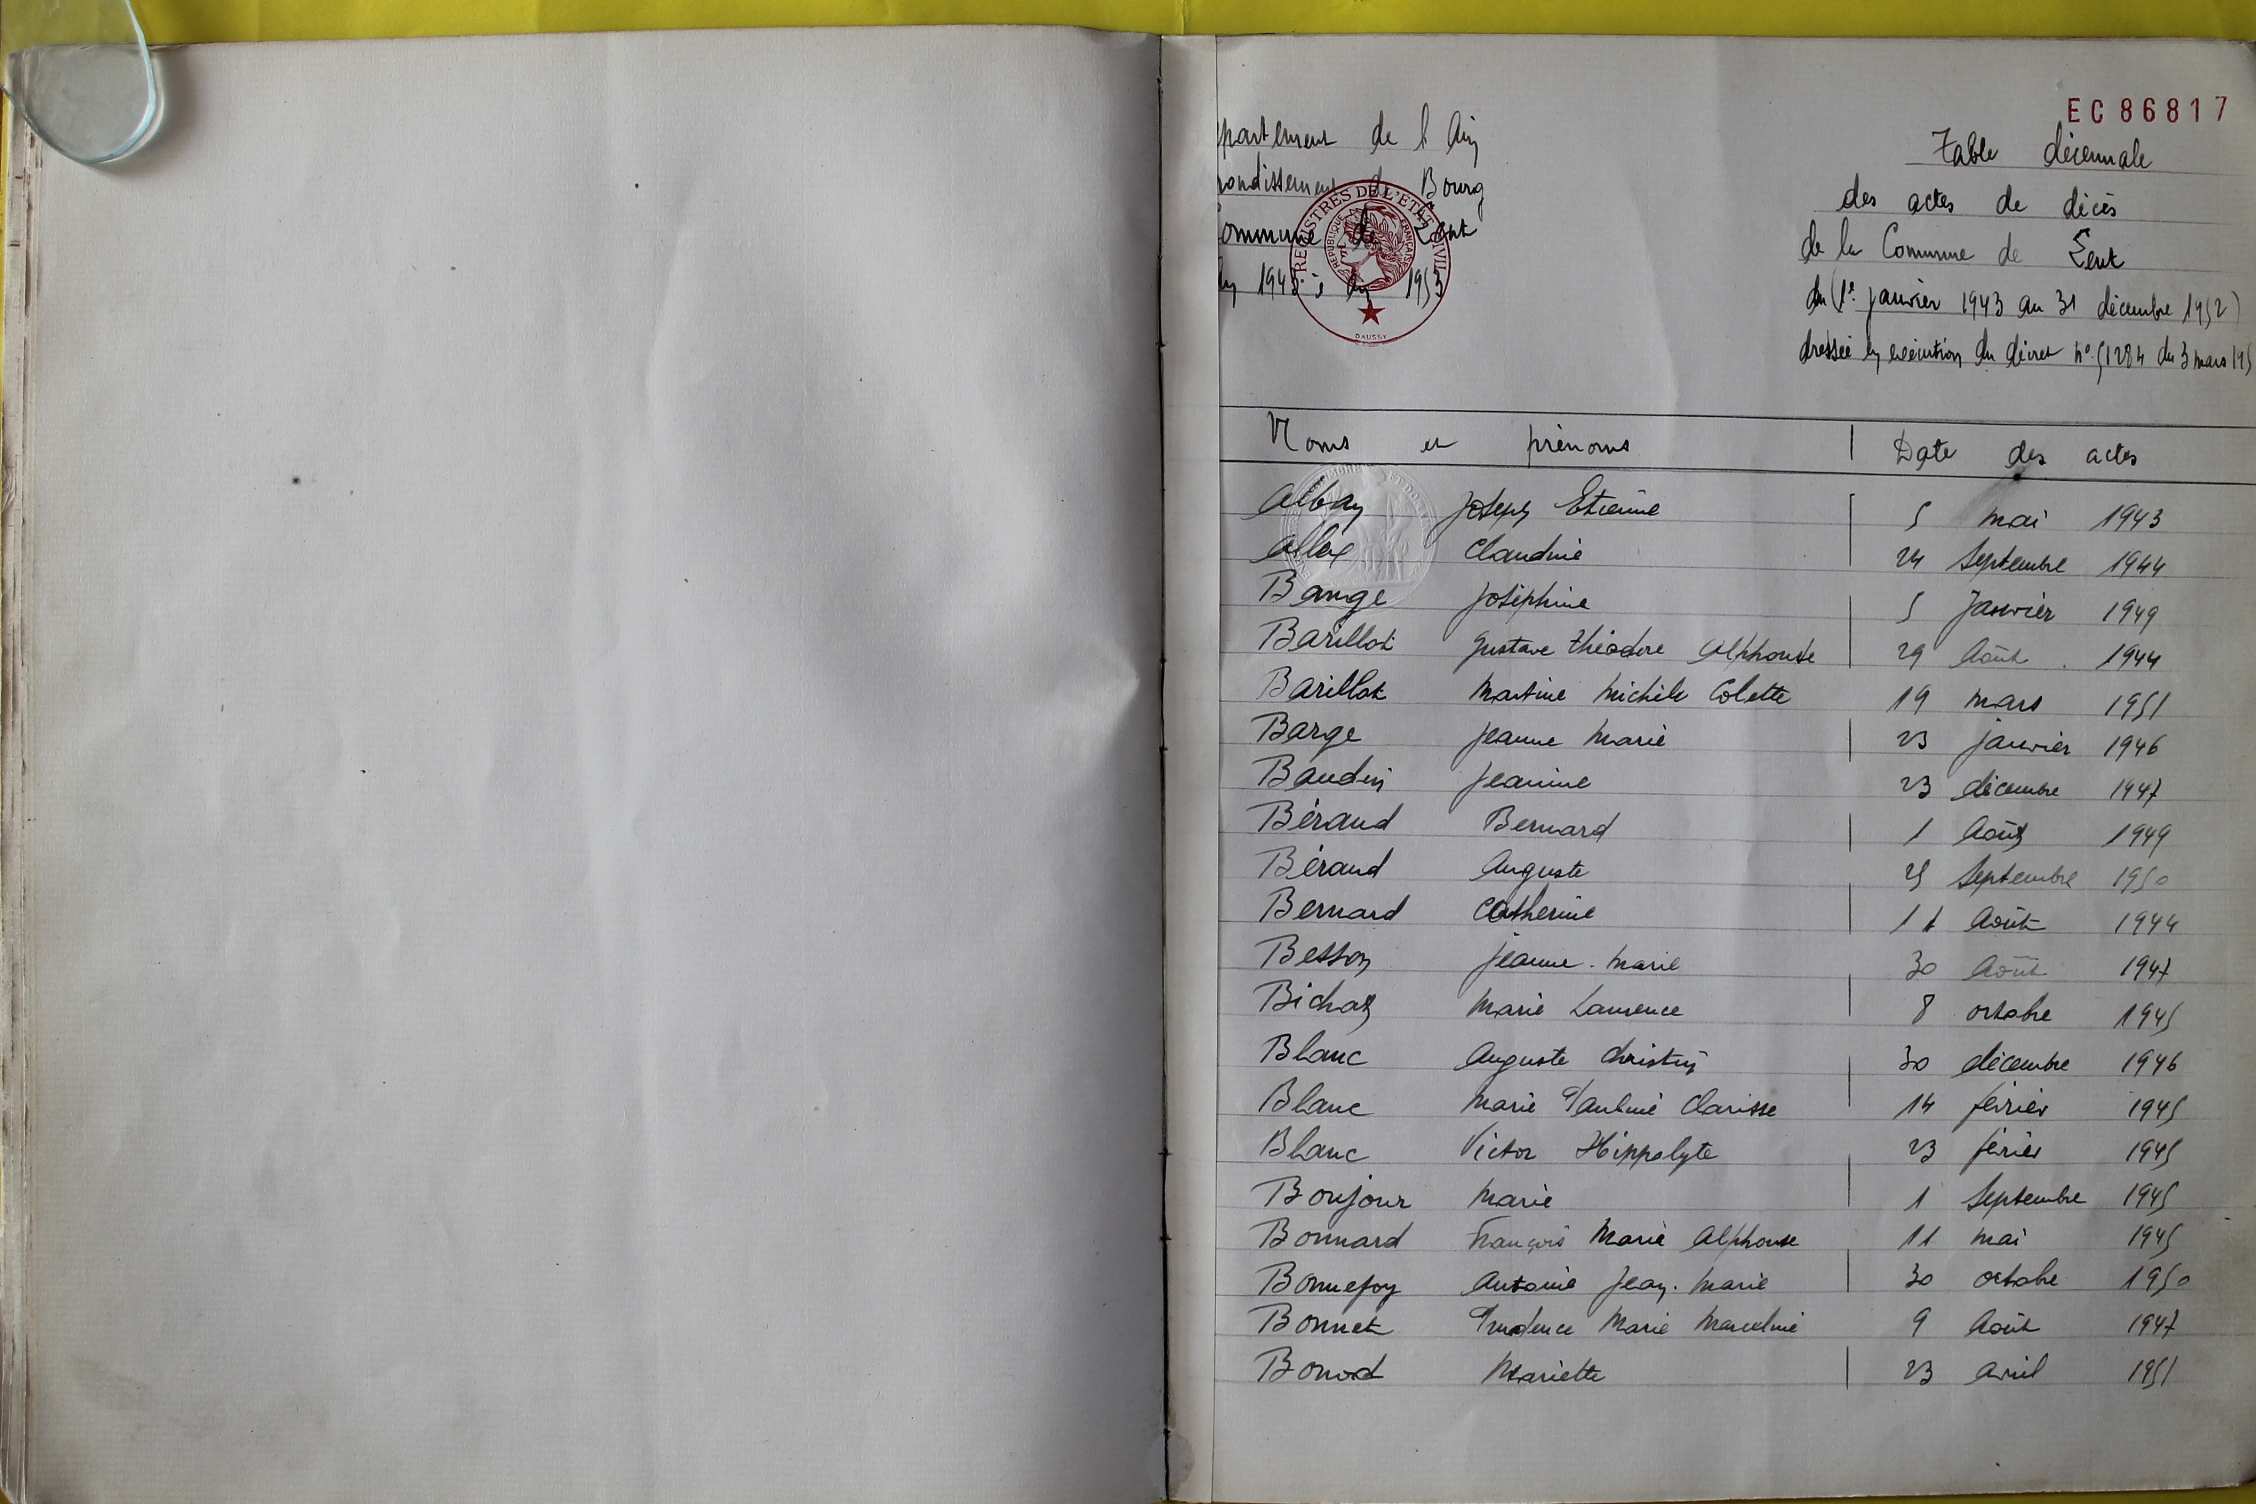 EC 86817
partement de l'Ain
rondissement de Bourg
ommune de Lent
REGISTRES DE L'ETAT CIVIL
REPUBLIQUE FRANÇAISE
DAUSSY
Table décennale
des actes de décès
de la Commune de Lent
du (1er janvier 1943 au 31 décembre 1952)
dressée en exécution du décret no 51284 du 3 mars 195
Noms et prénoms Date des actes
Alban Joseph Etienne 5 mai 1943
Allex Claudine 24 Septembre 1944
Bange Joséphine 5 Janvier 1949
Barillot Gustave Théodore Alphonse 29 Août 1944
Barillot Martine Michèle Colette 19 mars 1951
Barge Jeanne Marie 23 janvier 1946
Baudin Jeanine 23 décembre 1947
Béraud Bernard 1 Août 1949
Béraud Auguste 25 Septembre 1950
Bernard Catherine 11 Août 1944
Besson Jeanne-Marie 30 Août 1947
Bichat Marie Laurence 8 octobre 1945
Blanc Auguste Christin 30 décembre 1946
Blanc Marie Pauline Clarisse 14 février 1945
Blanc Victor Hippolyte 23 février 1945
Bonjour Marie 1 Septembre 1945
Bonnard François Marie Alphonse 11 mai 1945
Bonnefoy Antoine Jean-Marie 30 octobre 1950
Bonnet Prudence Marie Marceline 9 Août 1947
Bonod Mariette 23 avril 1951